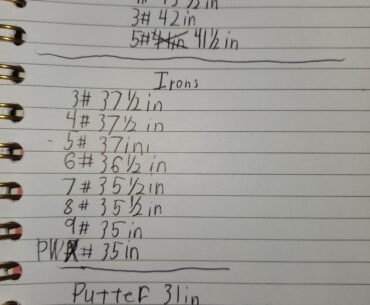 3# 42 in
5# 41 1/2 in
Irons
3# 37 1/2 in
4# 37 1/2 in
5# 37 in
6# 36 1/2 in
7# 35 1/2 in
8# 35 1/2 in
9# 35 in
PW # 35 in
Putter 31 in